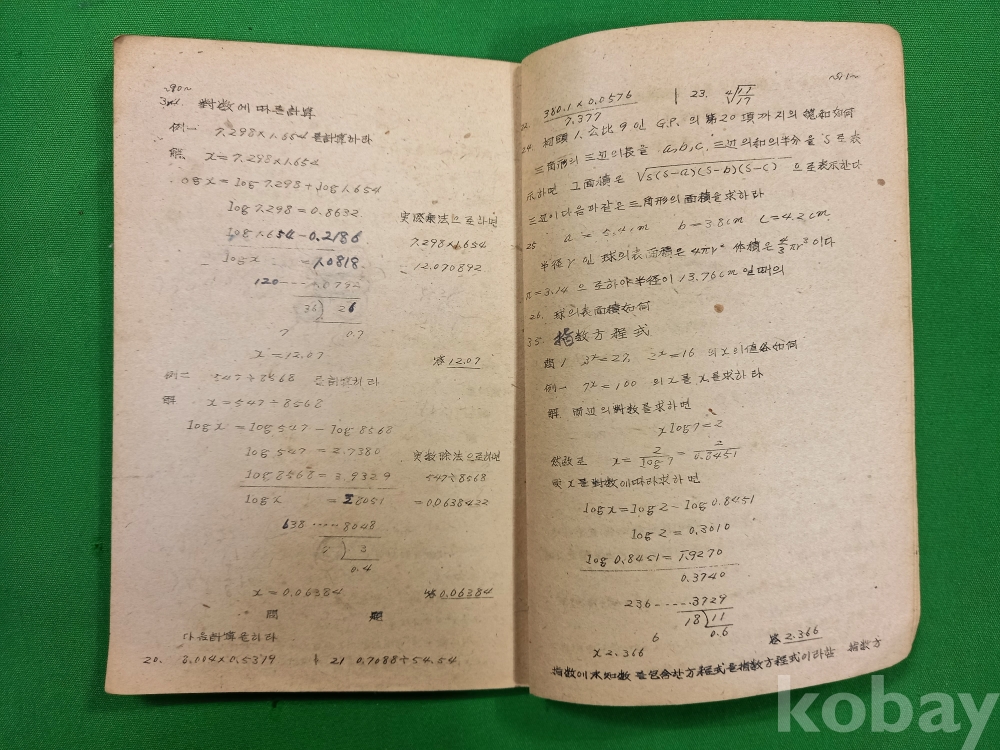 ~90~
34. 對数에따른計算
例一 7.298×1.654 를計算하라
解 x=7.298×1.654
logx=log7.298+log1.654
log7.298=0.8632
実際乘法으로하면
log1.654=0.2186
7.298×1.654
logx =1.0818
12.070892
120-----.0792
36) 26
7 0.7
x=12.07
答12.07
例二 547÷8568 를計算하라
解 x=547÷8568
logx=log547-log8568
log547=2.7380
実数除法으로하면
log8568=3.9329
547÷8568
logx =2.8051
=0.0638422
638-----8048
7) 3
0.4
x=0.06384
答0.06384
問 題
다음計算을하라
20. 3.004×0.5319 | 21 0.7088÷54.54
~91~
22. 380.1×0.0576/7.377 | 23. ⁴√11/17
24. 初項1,公比9인 G.P.의第20項까지의總和如何
三角形의三辺의長을 a,b,c,三辺의和의半分을 S로表
示하면 그面積은 √s(s-a)(s-b)(s-c) 으로表示한다
三辺이다음과같은三角形의面積을求하라
25 b=3.8cm c=4.2cm
半径r인球의表面積은4πr² 体積은4/3πr³이다
π=3.14 으로하야半径이13.76cm일때의
26. 球의表面積如何
35. 指数方程式
問1 3ˣ=27, 2ˣ=16 의x의値各如何
例一 7ˣ=100 의x를 求하라
解 両辺의対数를求하면
xlog7=2
然故로 x=2/log7=2/0.8451
x를對数에따라求하면
logx=log2-log0.8451
log2=0.3010
log0.8451=1̄.9270
0.3740
236------.3729
18)11
6 0.6
x 2.366
答2.366
指数이未知数를包含한方程式를指数方程式이라함 指数方
kobay